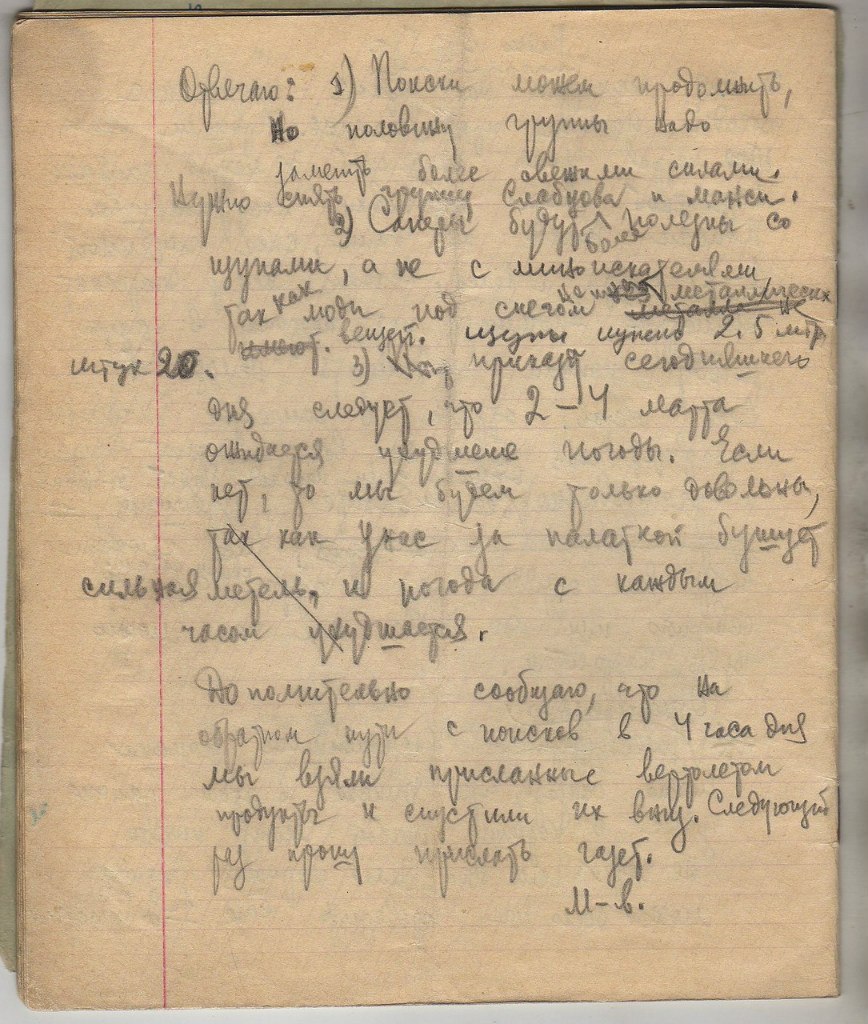 Отвечаю: 1) Поиски можем продолжить,
но половину группы надо
заменить более свежими силами.
Нужно снять группу Слабцова и манси.
2) Саперы будут более полезны со
щупами, а не с миноискателями
так как люди под снегом не металлических
имеют. вещей. щупы нужны 2.5 мтр.
штук 20.
3) приказа сегодняшнего
дня следует, что 2–4 марта
ожидается ухудшение погоды. Если
нет, то мы будем только довольны,
так как у нас за палаткой бушует
сильная метель, и погода с каждым
часом ухудшается.
Дополнительно сообщаю, что на
обратном пути с поисков в 4 часа дня
мы взяли присланные вертолетом
продукты и спустили их вниз. Следующий
раз прошу прислать газет.
М–в.